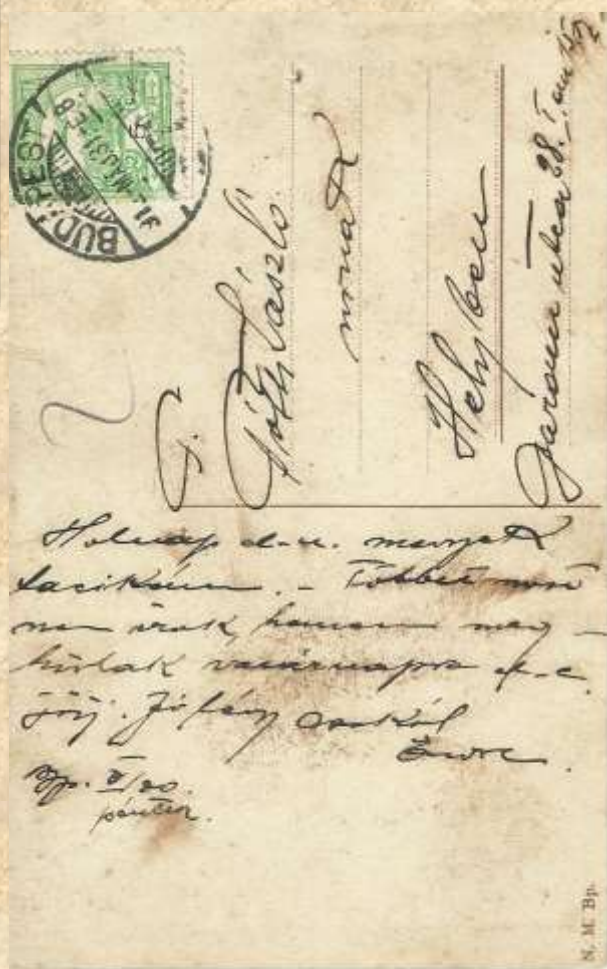 BUDAPEST
MÁJ 31
T.
László
urnak
Helyben
utca 28. I em 15
Holnap d-u. megyek
Lacikám. – Többet most
nem irok, hanem meg-
hívlak vasárnapra d-e.
jöjj.
Endre.
Bp.
péntek.
N. M. Bp.